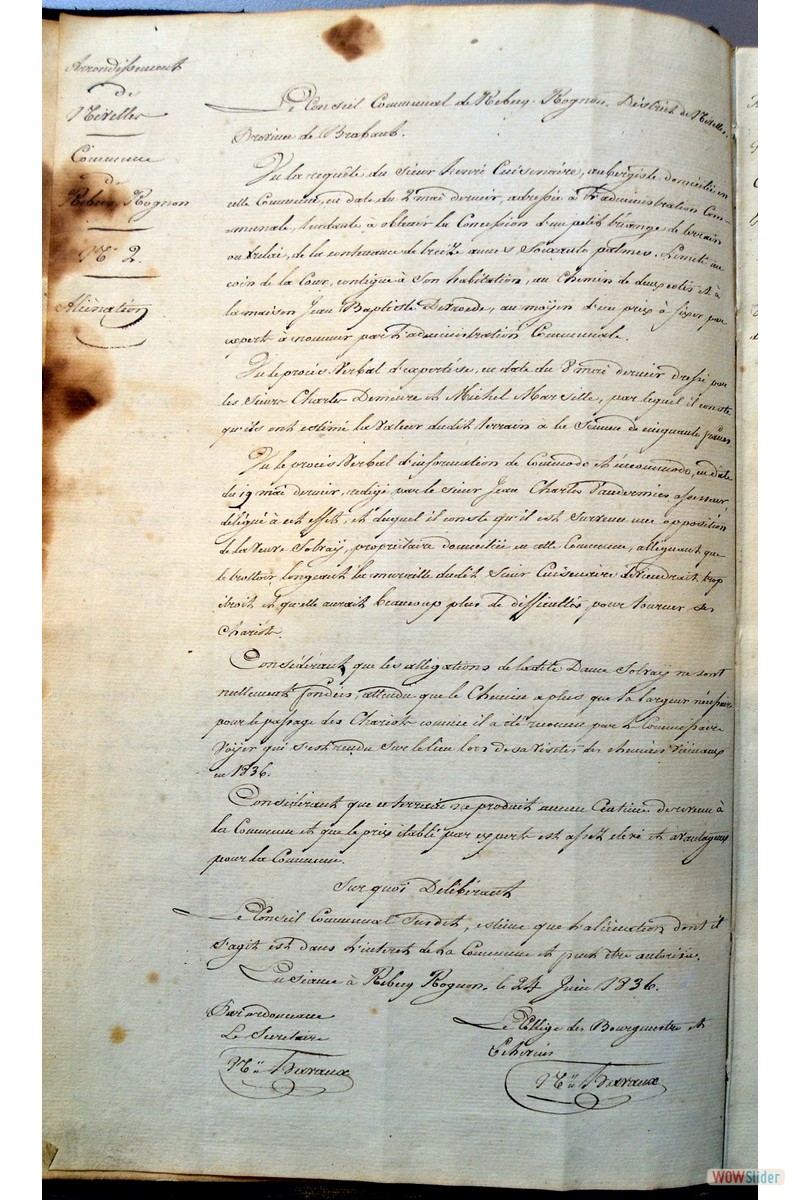 Arrondissement
de
Nivelles
Commune
de
Rebecq Rognon
N° 2.
Aliénation
Le Conseil Communal de Rebecq-Rognon, District de Nivelles,
Province de Brabant.
Vu la requête du Sieur henri Cuisenaire, aubergiste domicilié en
cette Commune, en date du 2 mai dernier, adressée à l'administration Com-
munale, tendante à obtenir la Concession d'un petit triangre de terrain
ou relais, de la contenance de treize aunes Soixante palmes. Limité au
coin de la Cour, contigue à Son habitation, au Chemin de deux cotés et à
la maison Jean Baptiste Deroede, au moyen d'un prix à fixer par
expert à nommer par l'administration Communale.
Vu le procès Verbal d'expertise, en date du 8 mai dernier dressé par
les Sieurs Charles Demeure et Michel Marsille, par lequel il conste
qu'ils ont estimé la Valeur dudit terrain à la Somme de cinquante francs
Vu le procès Verbal d'information de Commodo et incommodo, en date
du 19 mai dernier, rédigé par le Sieur Jean Charles Vandermies assesseur
délégué à cet effet, et duquel il conste qu'il est Survenu une opposition
de la Veuve Solvaÿ, propriétaire domiciliée en cette Commune, alléguant que
le trottoir longeant la muraille dudit Sieur Cuisenaire deviendrait trop
étroit et qu'elle aurait beaucoup plus de difficultés pour tourner ses
Chariots.
Considérant que les allégations de ladite Dame Solvaÿ ne sont
nullement fondées, attendu que le Chemin a plus que la largeur nécessaire
pour le passage des Chariots comme il a été reconnu par le Commissaire
Voyer qui s'est rendu Sur le lieu lors de sa visites des chemins Vicinaux
en 1836.
Considérant que ce terrain ne produit aucun Centime de revenu à
la Commune et que le prix établi par expert est assez élevé et avantageux
pour la Commune.
Sur quoi Délibérant
Le Conseil Communal Susdit, estime que l'aliénation dont il
s'agit est dans l'interet de la Commune et peut être autorisée.
En séance à Rebecq Rognon, le 24 Juin 1836.
Par ordonnance
Le Secrétaire
Le Collège des Bourgmestre et
Echevins
WOWSlider